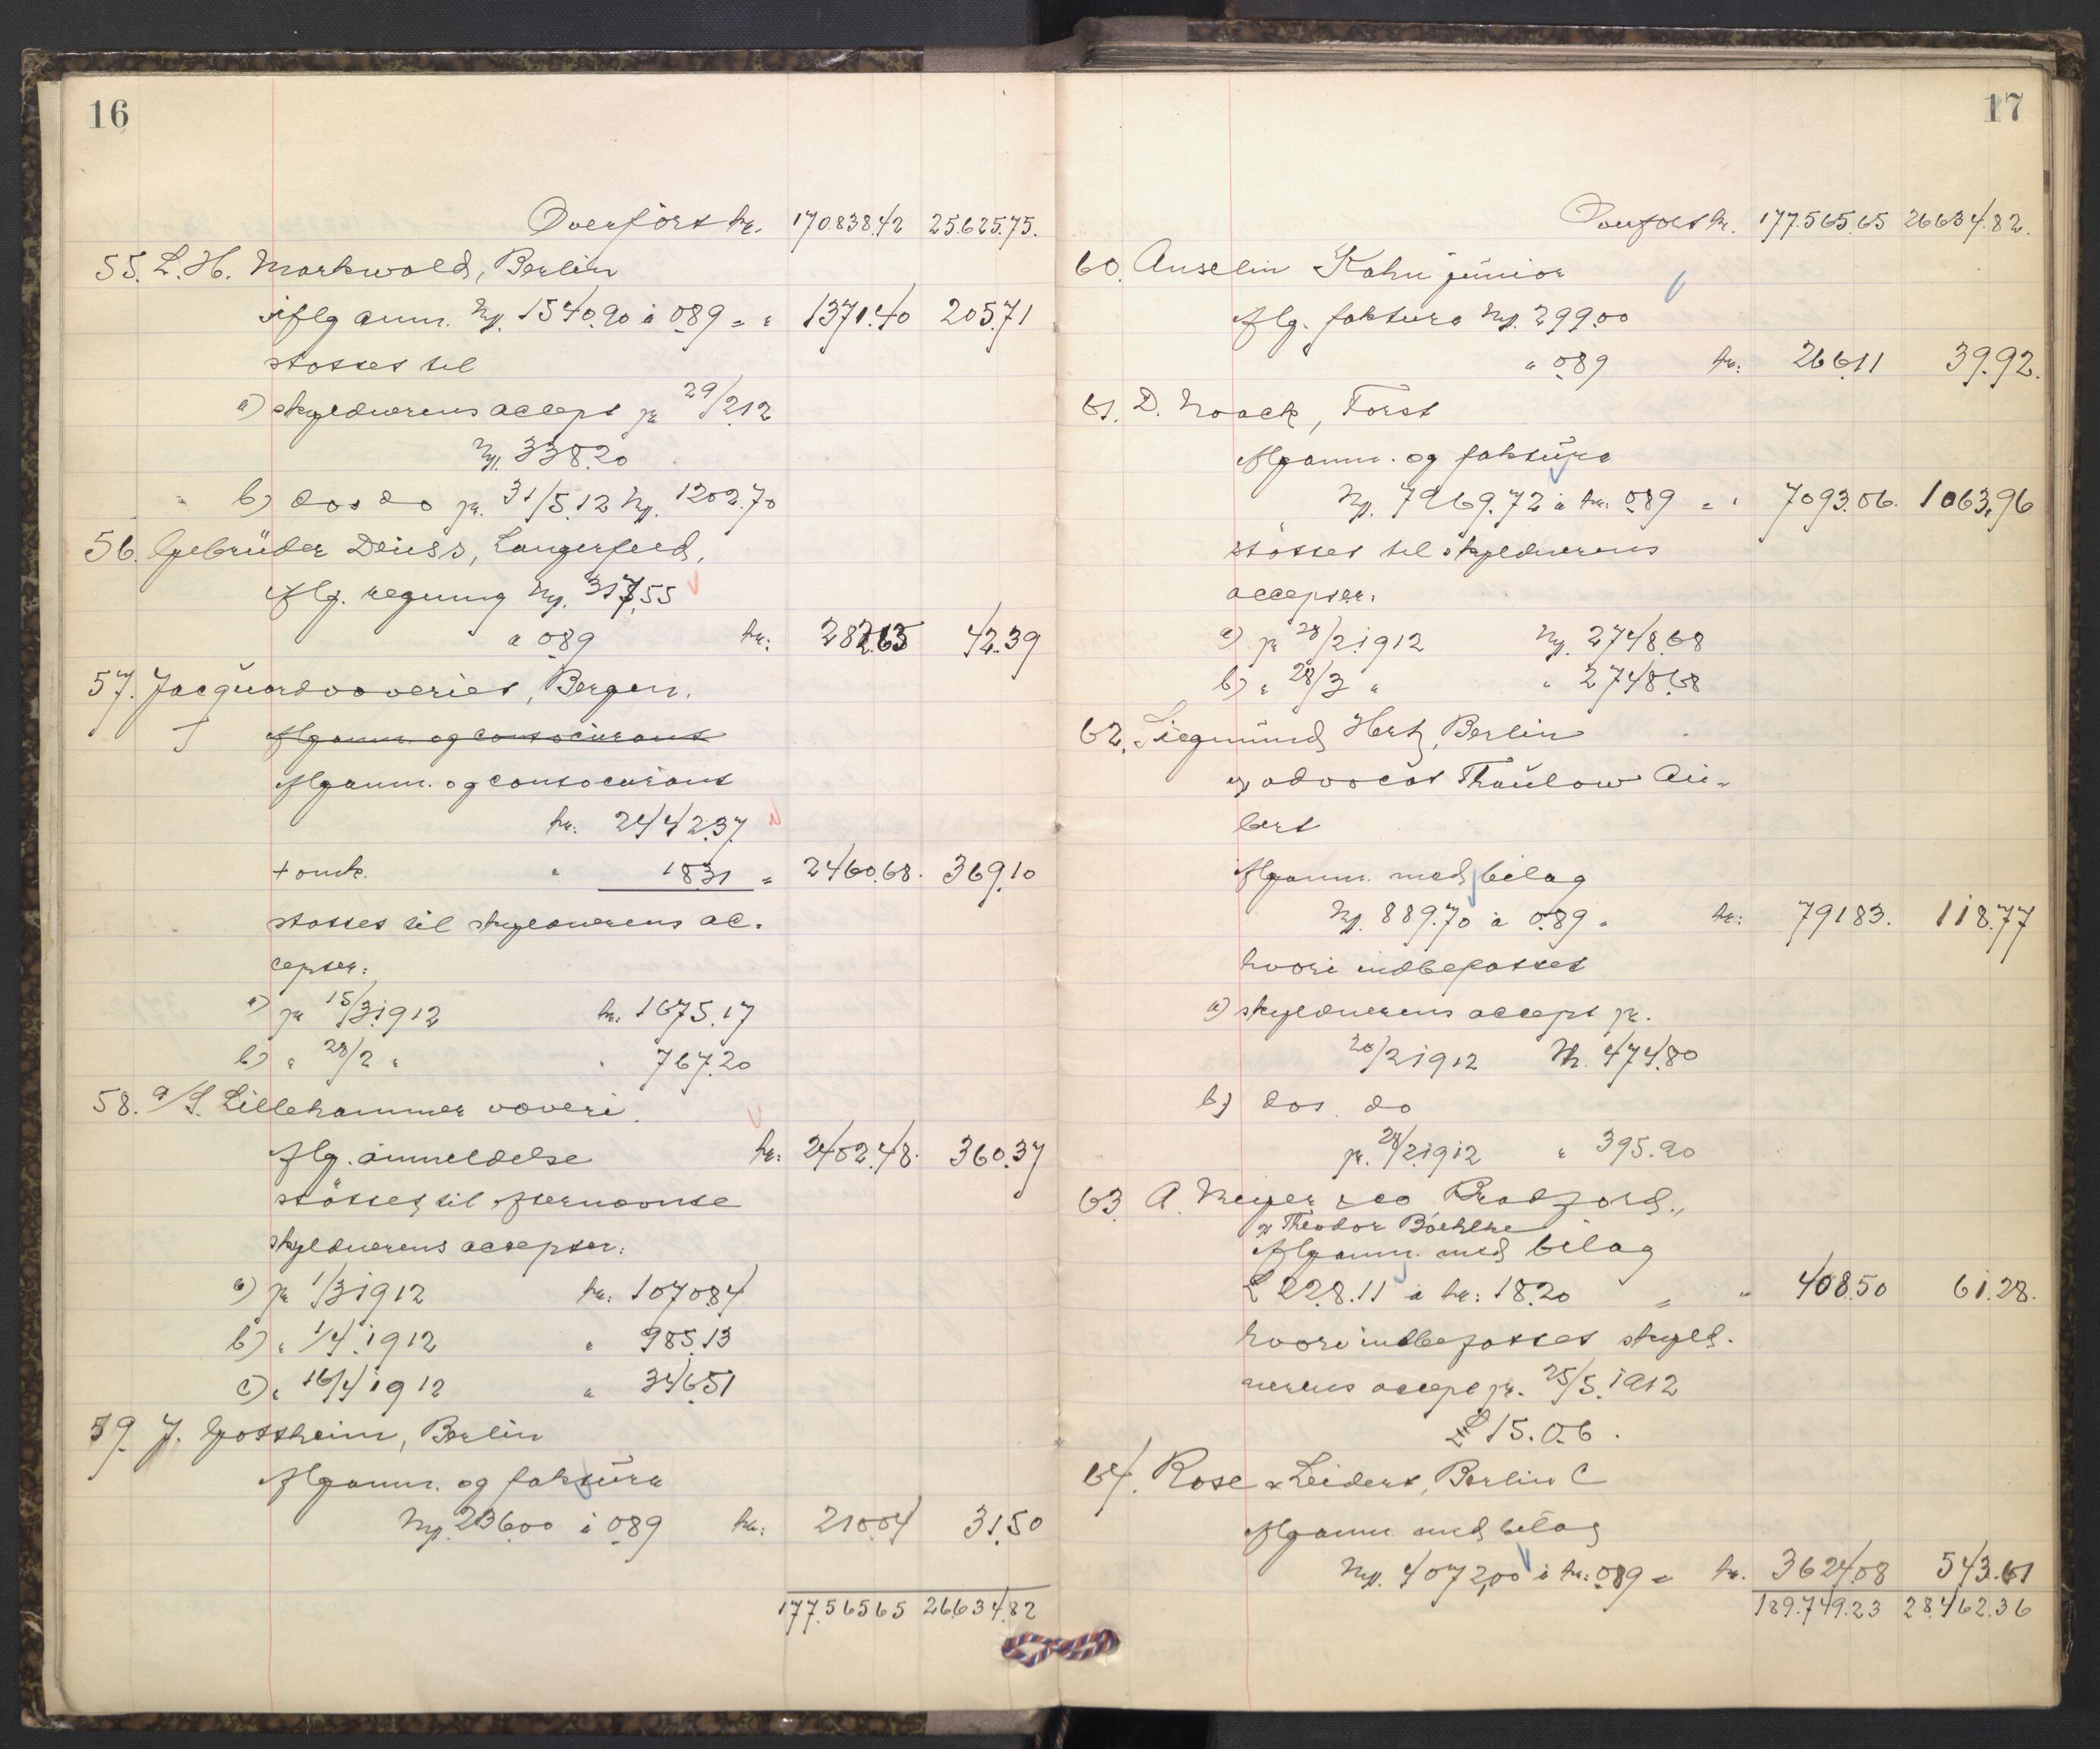 16
Overført kr. 170.838.42 25.625.75.
55. L. H. Markwald, Berlin
iflg anm. Mk. 1540.90 à 0.89 = " 1371.40 205.71
støttes til
a) skyldnerens accept pr 29/2.12
Mk. 338.20
b) dos do pr. 31/5.12 Mk. 1202.70
56. Gebrüder Deuss, Langerfeld,
iflg. regning Mk. 317.55
a 0.89 kr: 282.63 42.39
57. Jacquardvæveriet, Bergen.
iflg anm. og contocurant
iflg anm. og contocurant
kr: 2442.37.
+ omk. " 18.31 = 2460.68. 369.10
støttes til skyldnerens ac-
cepter:
a) pr 15/3.1912 kr: 1675.17
b) " 28/2 " " 767.20
58. a/S. Lillehammer væveri.
iflg. anmeldelse kr: 2402.48. 360.37
støttes til efternævnte
skyldnerens accepter:
a) pr 1/3 1912 kr: 1070.84
b) " 1/4. 1912 " 985.13
c) " 16/4 1912 " 346.51
59. J. Gottheim, Berlin
iflg anm. og faktura
Mk. 236.00 à 0.89 kr: 210.04 31.50
177.565.65 26.634.82
17
Overført kr. 177.565.65 26634.82.
60. Anselin Kahn junior
iflg. faktura Mk. 299.00
a 0.89 kr: 266.11 39.92.
61. D. Noack, Forst
iflg anm. og faktura
Mk. 7969.72 à kr: 0.89 = " 7093.06. 1063.96
støttes til skyldnerens
accepter.
a) pr 28/2.1912 Mk. 2748.68
b) " 28/3 " " 2748.68
62. Siegmund Hertz, Berlin
v/ advocat Thaulow Au-
bert
iflg anm. med bilag
Mk. 889.70 à 0.89 = kr: 791.83. 118.77
hvori indbefattes
a) skyldnerens accept pr.
20/2 1912 Mk. 474.80
b) dos. do
pr. 28/2.1912 " 395.90
63. A. Meyer & co, Bradford.,
v/ Theodor Boehlke
iflg anm. med bilag
£ 22.8.11 à kr: 18.20 = " 408.50 61.28.
hvori indbefattes skyld-
nerens accept pr. 25/5. 1912
£ 15.0.6.
64. Rose & Leiders, Berlin C
iflg anm. med bilag
Mk. 4072.00 à kr: 0.89 = kr. 3624.08 543.61
189.749.23 28.462.36